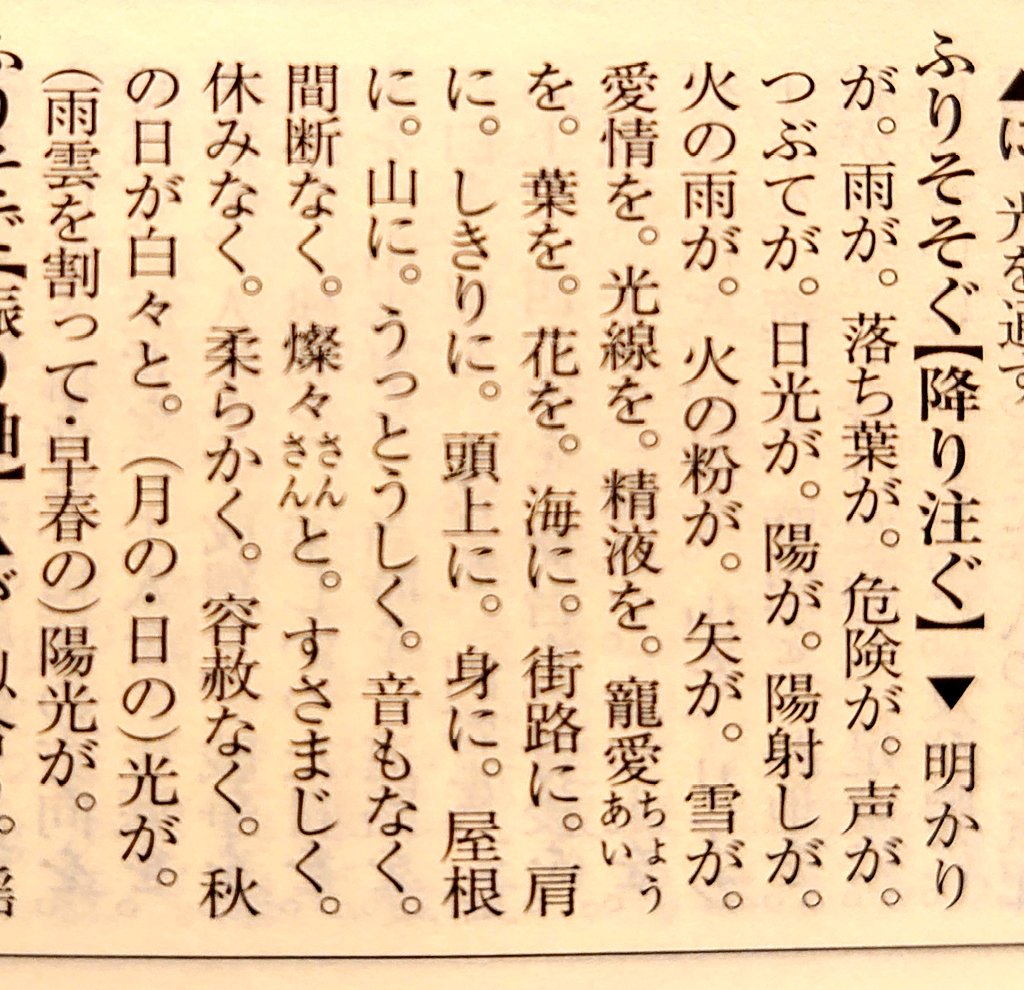 ▲に 光を通す
ふりそそぐ【降り注ぐ】▼ 明かり
が。雨が。落ち葉が。危険が。声が。
つぶてが。日光が。陽が。陽射しが。
火の雨が。火の粉が。矢が。雪が。
愛情を。光線を。精液を。寵愛ちょうあい
を。葉を。花を。海に。街路に。肩
に。しきりに。頭上に。身に。屋根
に。山に。うっとうしく。音もなく。
間断なく。燦々さんさんと。すさまじく。
休みなく。柔らかく。容赦なく。秋
の日が白々と。(月の・日の)光が。
(雨雲を割って・早春の)陽光が。
ふりそで【振り袖】